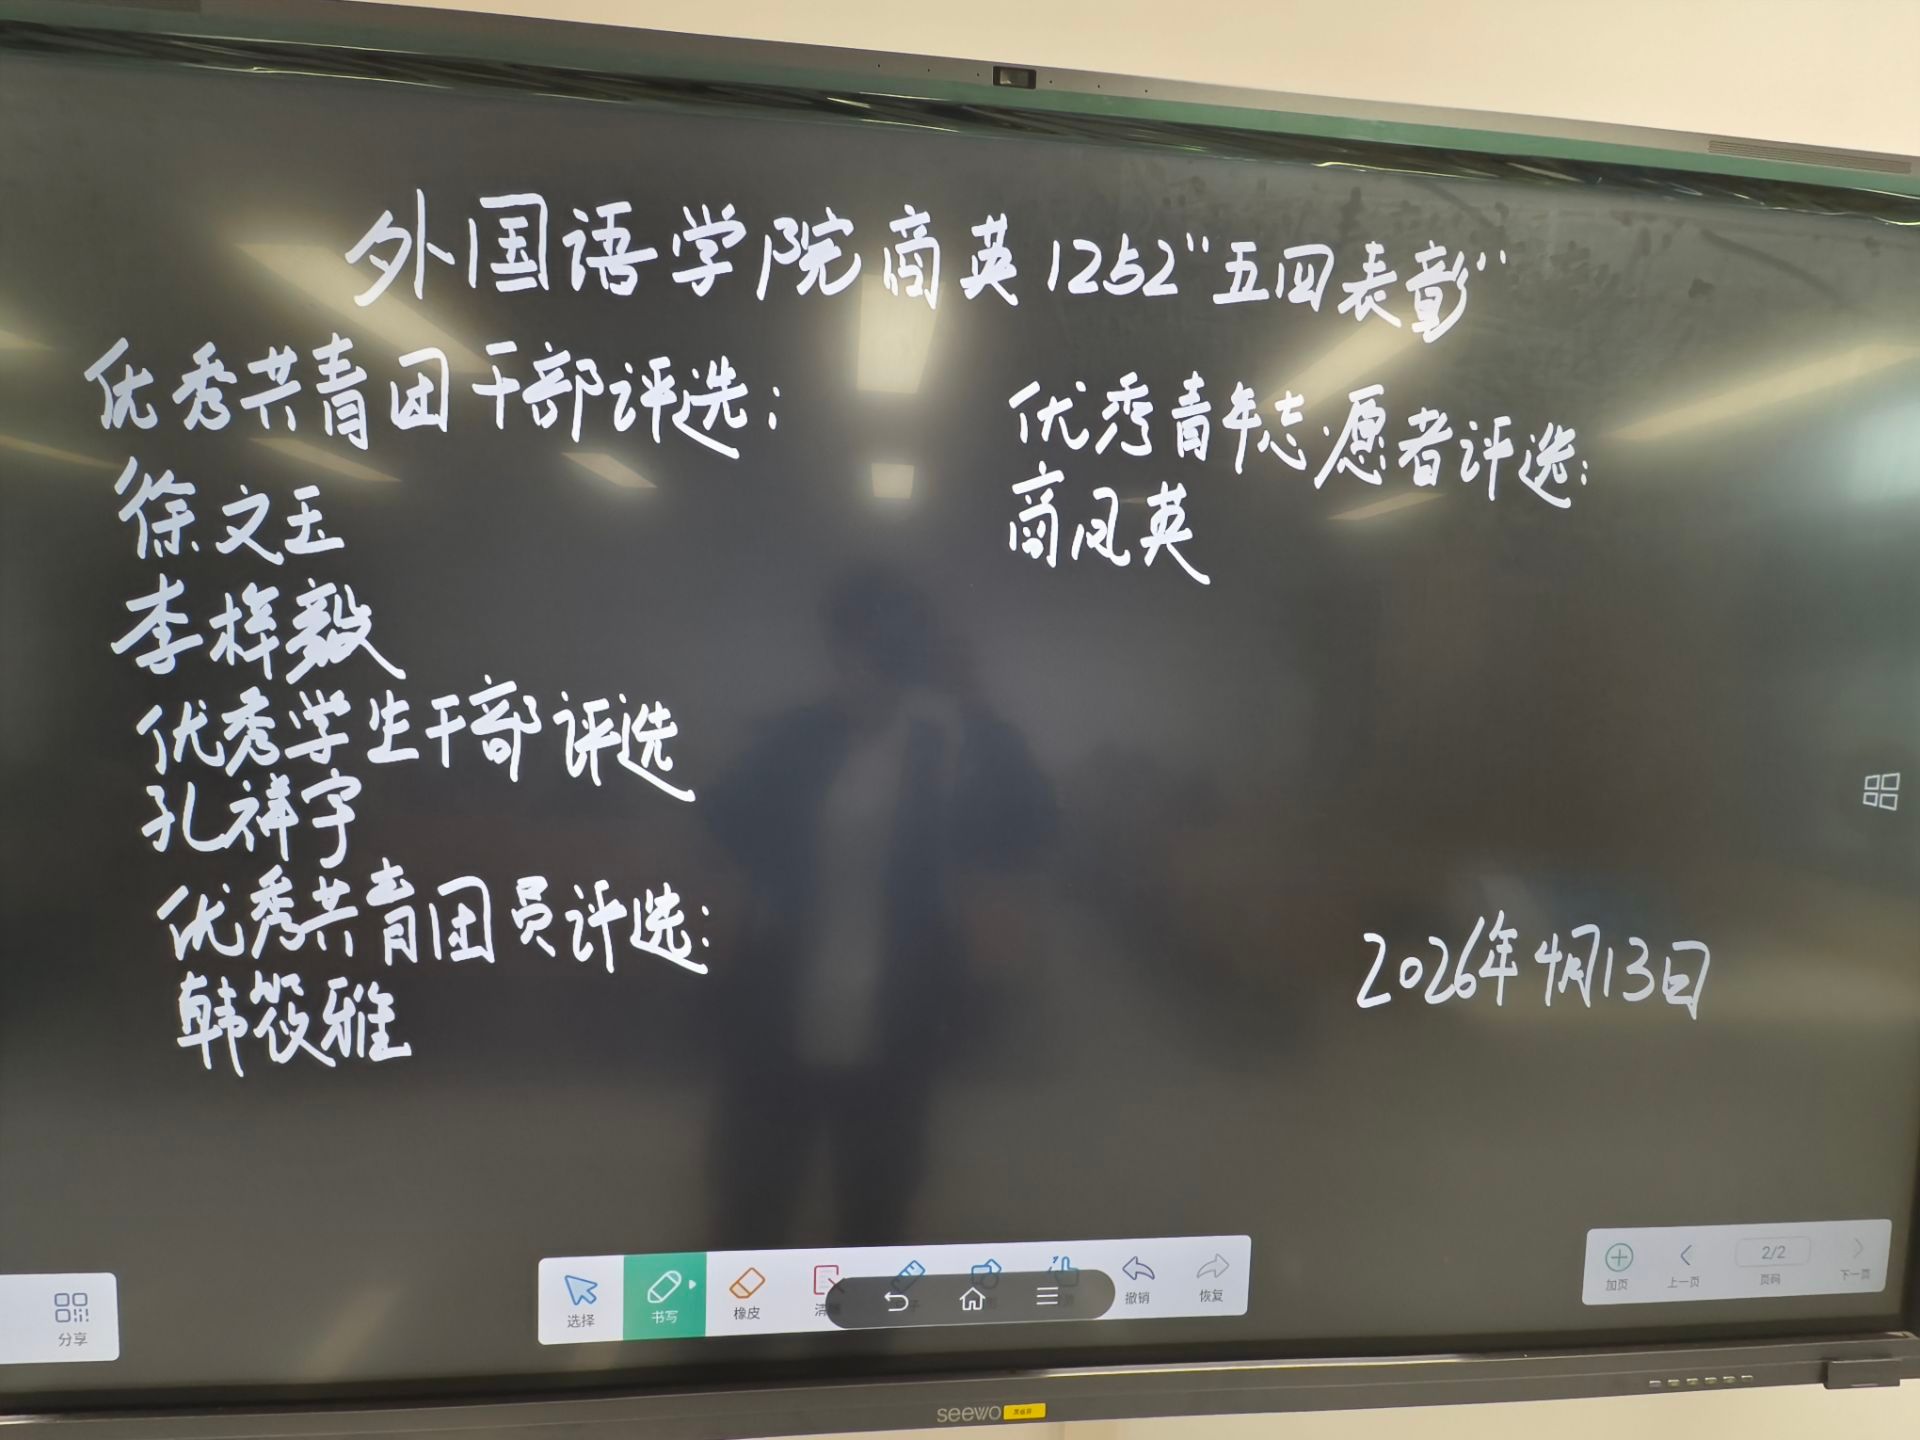 外国语学院商英1252“五四表彰”
优秀共青团干部评选:
徐文玉
李梓毅
优秀学生干部评选
孔祥宇
优秀共青团员评选:
韩筱雅
优秀青年志愿者评选:
商凤英
2026年4月13日
分享
选择
书写
橡皮
撤销
恢复
加页
上一页
2/2
页码
下一页
seewo